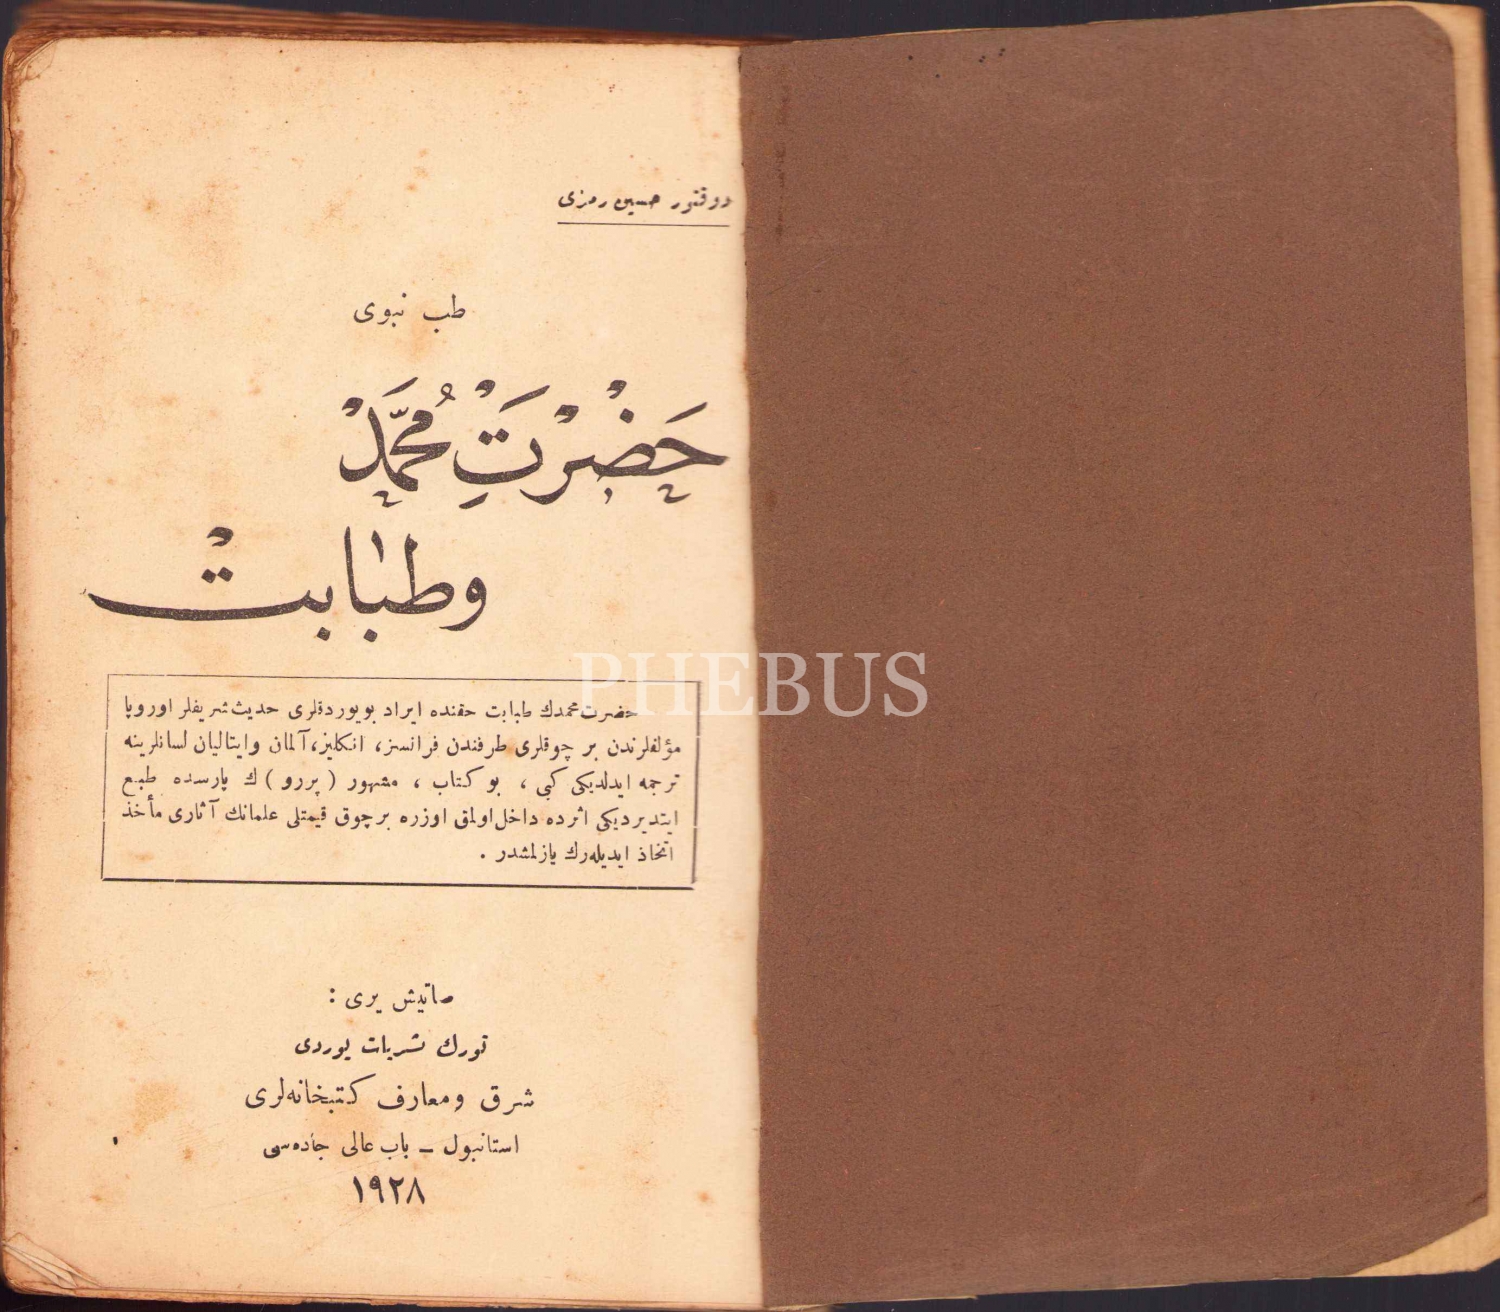 دوقتور حسین رمزی
طب نبوی
حَضْرَتِ مُحَمَّدْ
وطبابتْ
حضرت محمدك طبابت حقنده ایراد بویوردقلری حدیث شریفلر اوروپا
مؤلفلرندن بر چوقلری طرفندن فرانسز، انكلیز، آلمان وایتالیان لسانلرینه
ترجمه ایدلدیكی كبی ، بو كتاب ، مشهور ( پررو ) ك پارسده طبع
ایتدیردیكی اثرده داخل اولمق اوزره برچوق قیمتلی علمانك آثاری مأخذ
اتخاذ ایدیله‌رك یازلمشدر .
PHEBUS
صاتیش یری :
تورك نشریات یوردی
شرق ومعارف كتبخانه‌لری
استانبول – باب عالی جاده‌سی
١٩٢٨